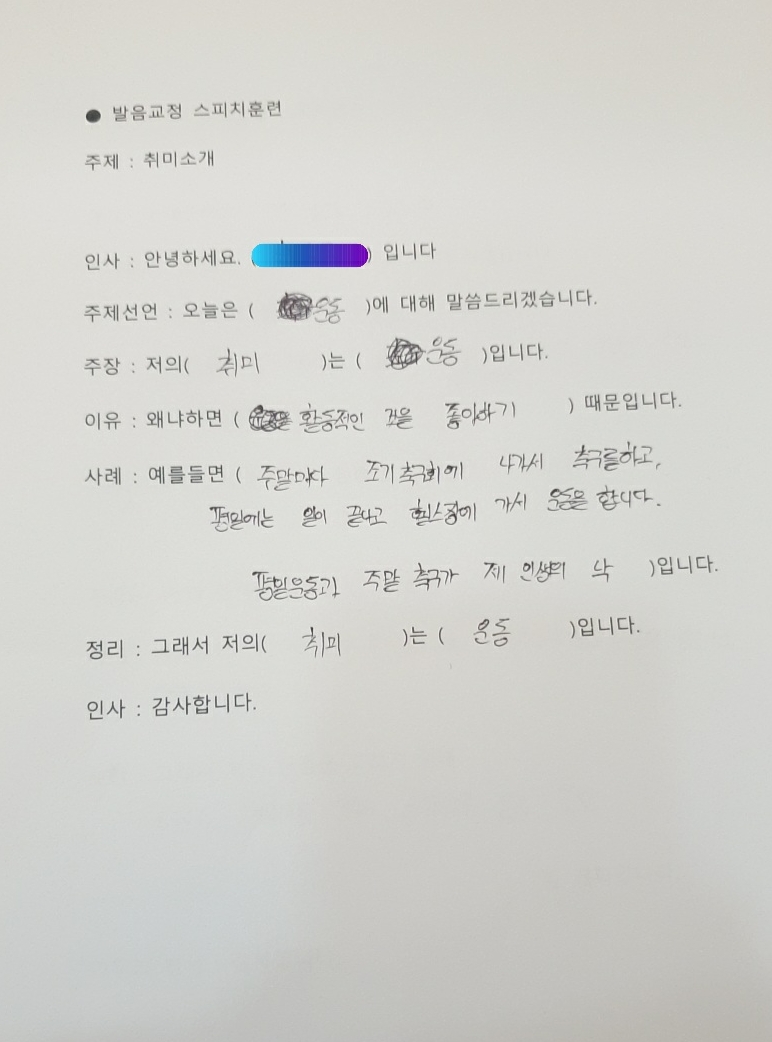 ● 발음교정 스피치훈련
주제 : 취미소개
인사 : 안녕하세요. ( ) 입니다
주제선언 : 오늘은 ( 운동 )에 대해 말씀드리겠습니다.
주장 : 저의( 취미 )는 ( 운동 )입니다.
이유 : 왜냐하면 ( 활동적인 것을 좋아하기 ) 때문입니다.
사례 : 예를들면 ( 주말마다 조기축구회에 나가서 축구를하고,
평일에는 일이 끝나고 헬스장에 가서 운동을 합니다.
평일운동과 주말 축구가 제 인생의 낙 )입니다.
정리 : 그래서 저의( 취미 )는 ( 운동 )입니다.
인사 : 감사합니다.